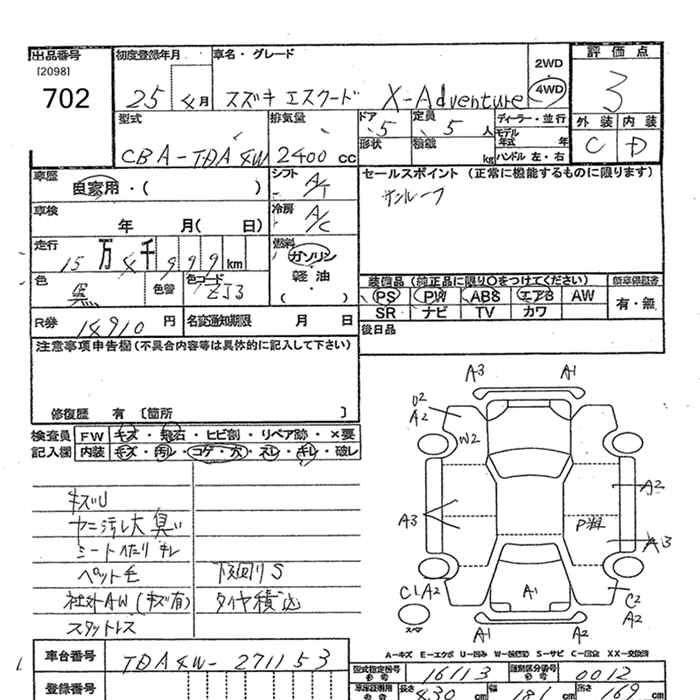 出品番号 [2098] 702
初度登録年月 25 4月
車名・グレード スズキ エスクード X-Adventure
2WD 4WD
評価点 3
外装 C 内装 D
型式 CBA-TDA4W
排気量 2400 cc
ドア 5 定員 5 人
形状 積載 kg
ディーラー・並行
モデル年式 年
ハンドル 左・右
車歴 自家用・( )
シフト A/T
セールスポイント (正常に機能するものに限ります)
サンルーフ
車検 年 月( 日)
冷房 A/C
走行 15万4千999km
燃料 ガソリン 軽油 ( )
色 黒 色替 色コード ZJ3
装備品 (純正品に限り〇をつけてください)
PS PW ABS エアB AW
SR ナビ TV カワ
新車保証書 有・無
R券 14910円 名変通知期限 月 日
後日品
注意事項申告欄 (不具合内容等は具体的に記入して下さい)
修復歴 有 [箇所 ]
検査員 FW キズ・飛石・ヒビ割・リペア跡・×要
記入欄 内装 キズ・汚レ・コゲ・穴・スレ・キレ・破レ
キズU
ヤニ汚レ大 臭い
シートへたり キレ
ペット毛 下廻りS
社外AW(キズ有) タイヤ積込
スタットレス
A3 A1
U2
A2
W2
A2
A3
P料
A3
C1 A2
スペア
A1
C2
A2
A1 A2
A-キズ E-エクボ U-凹み W-補修跡 S-サビ C-腐食 XX-交換済
車台番号 TDA4W-271153
型式指定番号 参考 16113
類別区分番号 参考 0012
登録番号
車庫証明用 参考 長さ 430 cm 幅 181 cm 高さ 169 cm